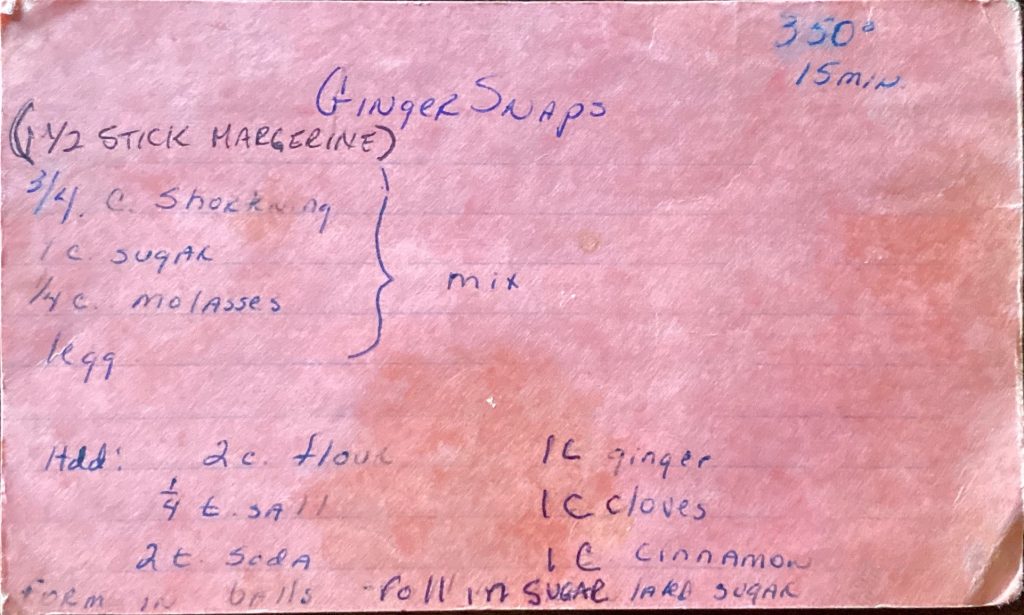 350°
15 min.
Ginger Snaps
(1 1/2 STICK MARGERINE)
3/4. C. Shortning
1 c. sugar
1/4 c. molasses
1 egg
mix
Add: 2 c. flour 1C ginger
1/4 t. salt 1C cloves
2 t. soda 1C cinnamon
Form in balls - roll in SUGAR sugar